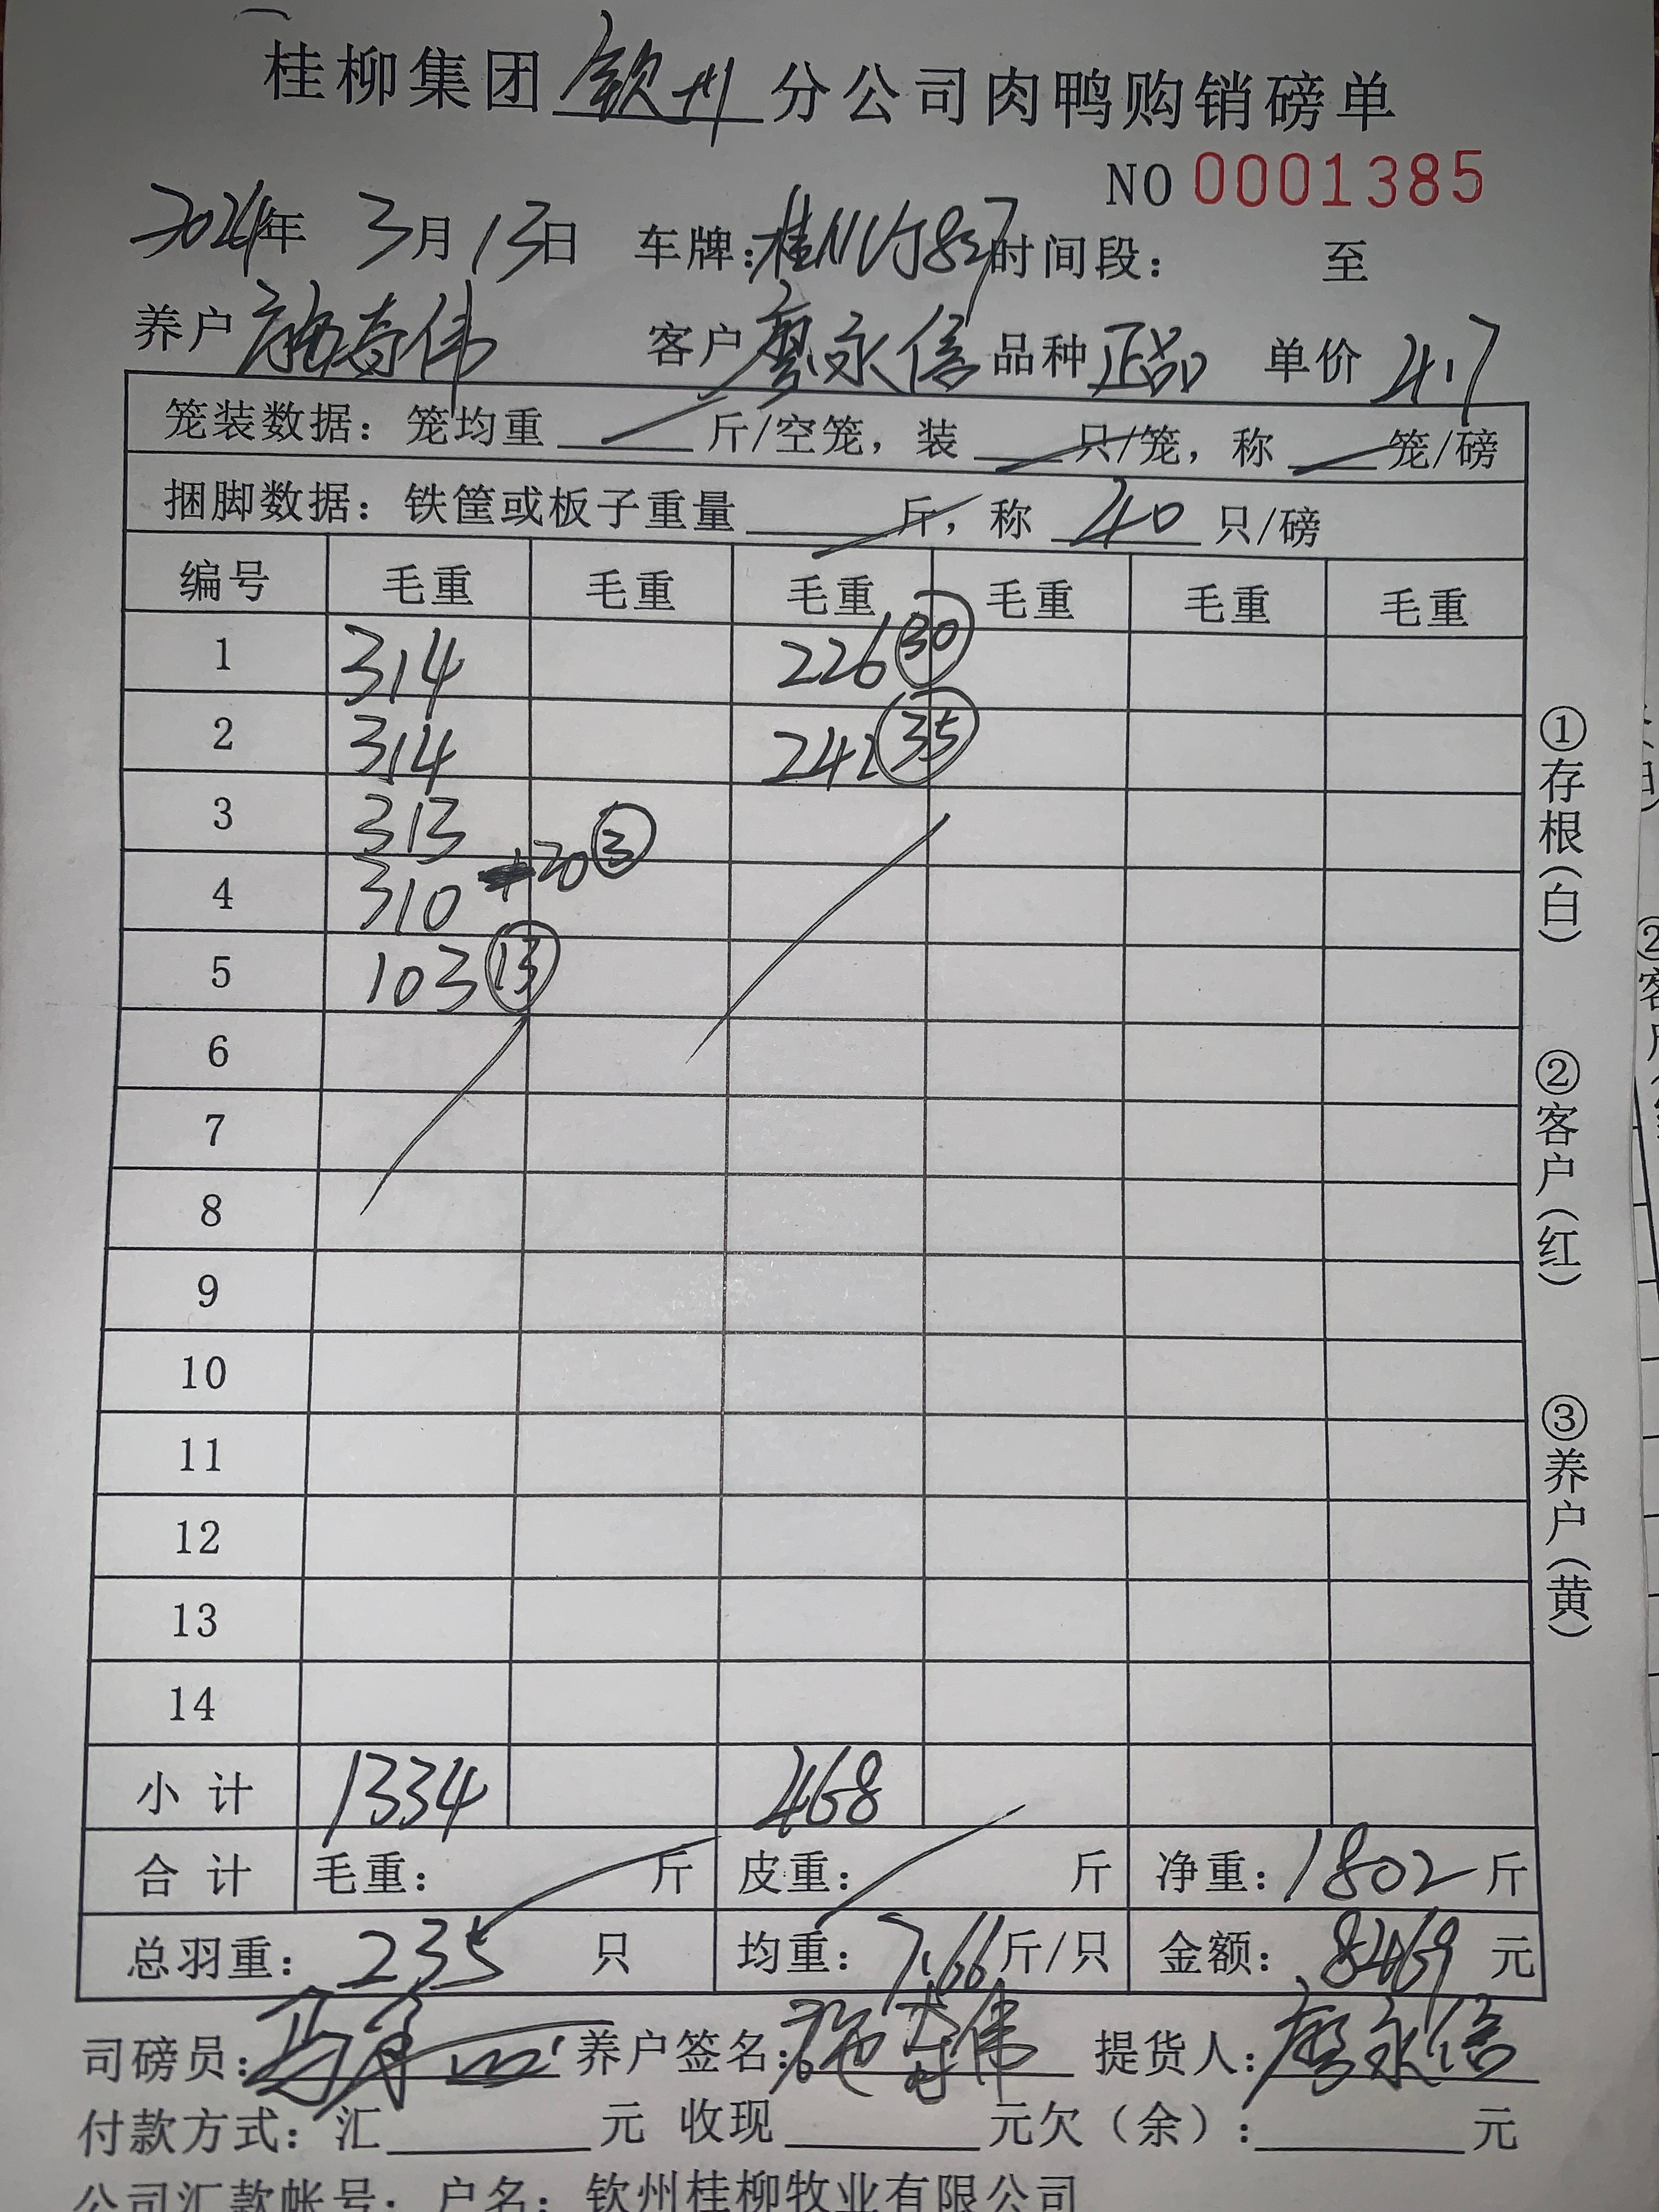 桂柳集团钦州分公司肉鸭购销磅单
NO 0001385
2024年 3月13日 车牌:桂 时间段: 至
养户 施寿伟 客户 廖永信 品种 正品 单价 4.7
笼装数据: 笼均重 斤/空笼, 装 只/笼, 称 笼/磅
捆脚数据: 铁筐或板子重量 斤, 称 40 只/磅
编号 毛重 毛重 毛重 毛重 毛重 毛重
1 314 226 30
2 314 242 35
3 313
4 310 +20 3
5 103 13
6
7
8
9
10
11
12
13
14
小计 1334 468
合计 毛重: 斤 皮重: 斤 净重: 1802 斤
总羽重: 235 只 均重: 7.66 斤/只 金额: 8469 元
司磅员: 养户签名: 施寿伟 提货人: 廖永信
付款方式: 汇 元 收现 元欠(余): 元
公司汇款帐号: 户名: 钦州桂柳牧业有限公司
①存根(白)
②客户(红)
③养户(黄)